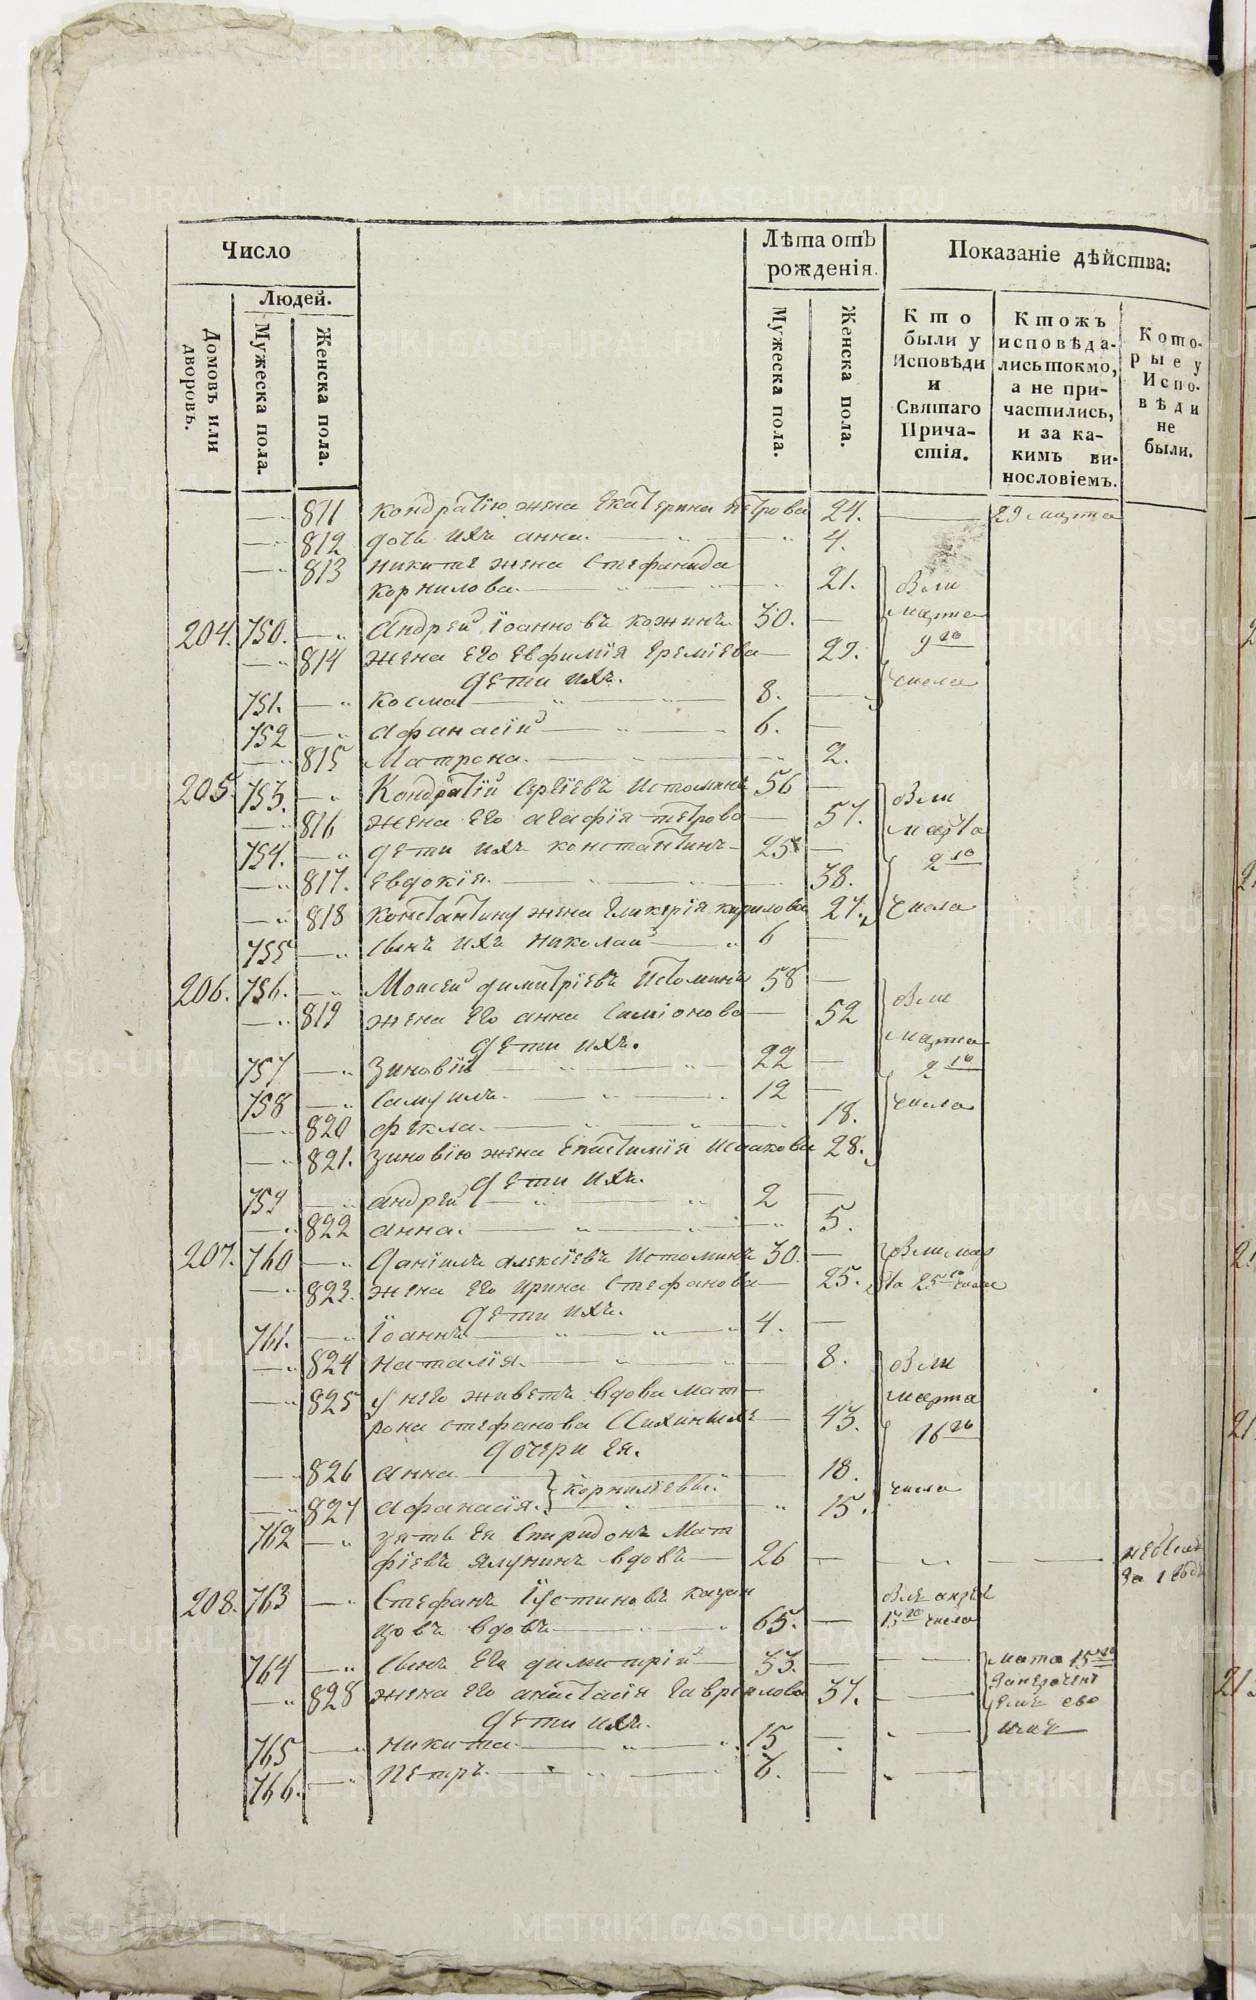 Число
Лѣта отъ рожденія.
Показаніе дѣйства:
Людей.
Домовъ или дворовъ.
Мужеска пола.
Женска пола.
Мужеска пола.
Женска пола.
Кто были у Исповѣди и Святаго Причастія.
Ктожъ исповѣдались токмо, а не причастились, и за какимъ винословіемъ.
Которые у Исповѣди не были.
811 Кондратію жена Екатерина Петрова 24. 29 марта
812 дочь ихъ анна. 4.
813 никите жена Стефанида
корнилова. 21. были
204. 750. Андрей Іоанновъ кожинъ 30. марта
814 жена его Евфимія Еремѣева 29. 9го
дети ихъ. числа
751. Косма 8.
752 афанасій 6.
815 Матрона. 2.
205. 753. Кондратій Сергіевъ Истоминъ 56 были
816 жена его агафія петрова 57. марта
754. дети ихъ константинъ 25
817. евдокія. 38.
818 константину жена Гликерія кирилова 27. числа
755 сынъ ихъ николай 6
206. 756. Моисей димитріевъ Истоминъ 58 были
819 жена его анна Симіонова 52 марта
дети ихъ.
757 Зиновій 22
758 Самуилъ. 12 числа
820 фекла. 18.
821. зиновію жена Епистимія Исаакова 28.
дети ихъ.
759 андрей 2
822 анна. 5.
207. 760 Даніилъ алексіевъ Истоминъ 30. были мар
823. жена его ирина Стефанова 25. та 25го числа
дети ихъ.
761. Іоаннъ 4.
824 наталія. 8. были
825 у него живетъ вдова мат марта
рона стефанова 43. 16го
дочери ея.
826 анна 18. числа
827 афанасія. корниліевы. 15.
762 зять ея Спиридонъ Мат
фіевъ Ялунинъ вдовъ 26
208. 763 Стефанъ Іустиновъ казан
цовъ вдовъ 65. 13го числа
764 сынъ его димитрій 33. 15го
828 жена его анастасія Гаврилова 37.
дети ихъ.
765 никита 15
766. Петръ. 6.
METRIKI.GASO-URAL.RU